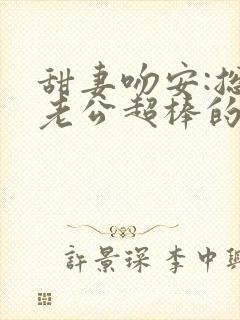 甜妻吻安:
老公超棒的
許景琛 李中